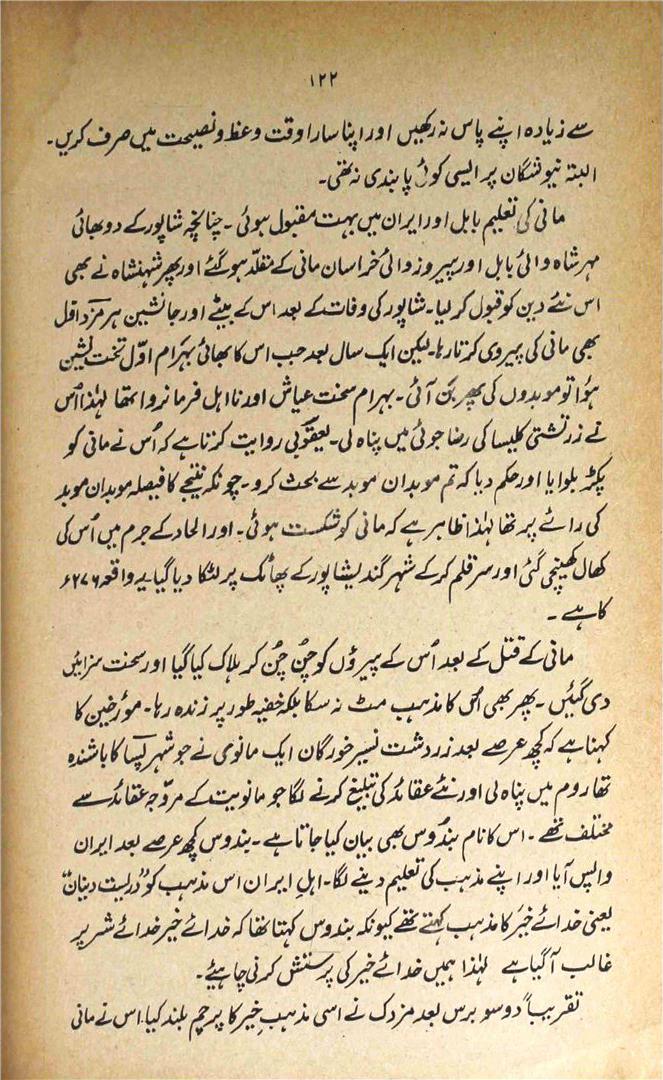 ۱۲۲
سے زیادہ اپنے پاس نہ رکھیں اور اپنا سارا وقت وعظ و نصیحت میں صرف کریں۔
البتہ نیوشگان پر ایسی کوئی پابندی نہ تھی۔
مانی کی تعلیم بابل اور ایران میں بہت مقبول ہوئی۔ چنانچہ شاپور کے دو بھائی
مہرشاہ والئ بابل اور پیروز والئ خراسان مانی کے مقلد ہو گئے اور پھر شہنشاہ نے بھی
اس نئے دین کو قبول کر لیا۔ شاپور کی وفات کے بعد اس کے بیٹے اور جانشین ہرمزد اول
بھی مانی کی پیروی کرتا رہا۔ لیکن ایک سال بعد جب اس کا بھائی بہرام اوّل تخت نشین
ہؤا تو موبدوں کی پھر بَن آئی۔ بہرام سخت عیاش اور نااہل فرمانروا تھا لہٰذا اُس
نے زرتشتی کلیسا کی رضا جوئی میں پناہ لی۔ یعقوبی روایت کرتا ہے کہ اُس نے مانی کو
پکڑ بلوایا اور حکم دیا کہ تم موبدان موبد سے بحث کرو۔ چونکہ نتیجے کا فیصلہ موبدان موبد
کی رائے پر تھا لہٰذا ظاہر ہے کہ مانی کو شکست ہوئی۔ اور الحاد کے جرم میں اُس کی
کھال کھینچی گئی اور سر قلم کر کے شہر گندیشاپور کے پھاٹک پر لٹکا دیا گیا یہ واقعہ ۲۷۶ء
کا ہے۔
مانی کے قتل کے بعد اُس کے پیرؤں کو چُن چُن کر ہلاک کیا گیا اور سخت سزائیں
دی گئیں۔ پھر بھی اُس کا مذہب مٹ نہ سکا بلکہ خفیہ طور پر زندہ رہا۔ مؤرخین کا
کہنا ہے کہ کچھ عرصے بعد زردشت نسیر خورگان ایک مانوی نے جو شہر پَسا کا باشندہ
تھا روم میں پناہ لی اور نئے عقائد کی تبلیغ کرنے لگا جو مانویت کے مروّجہ عقائد سے
مختلف تھے۔ اس کا نام بندوس بھی بیان کیا جاتا ہے۔ بندوس کچھ عرصے بعد ایران
واپس آیا اور اپنے مذہب کی تعلیم دینے لگا۔ اہلِ ایران اس مذہب کو "درلیت دینان"
یعنی خدائے خیر کا مذہب کہتے تھے کیونکہ بندوس کہتا تھا کہ خدائے خیر خدائے شر پر
غالب آ گیا ہے لہٰذا ہمیں خدائے خیر کی پرستش کرنی چاہیئے۔
تقریباً دو سو برس بعد مزدک نے اسی مذہبِ خیر کا پرچم بلند کیا۔ اس نے مانی